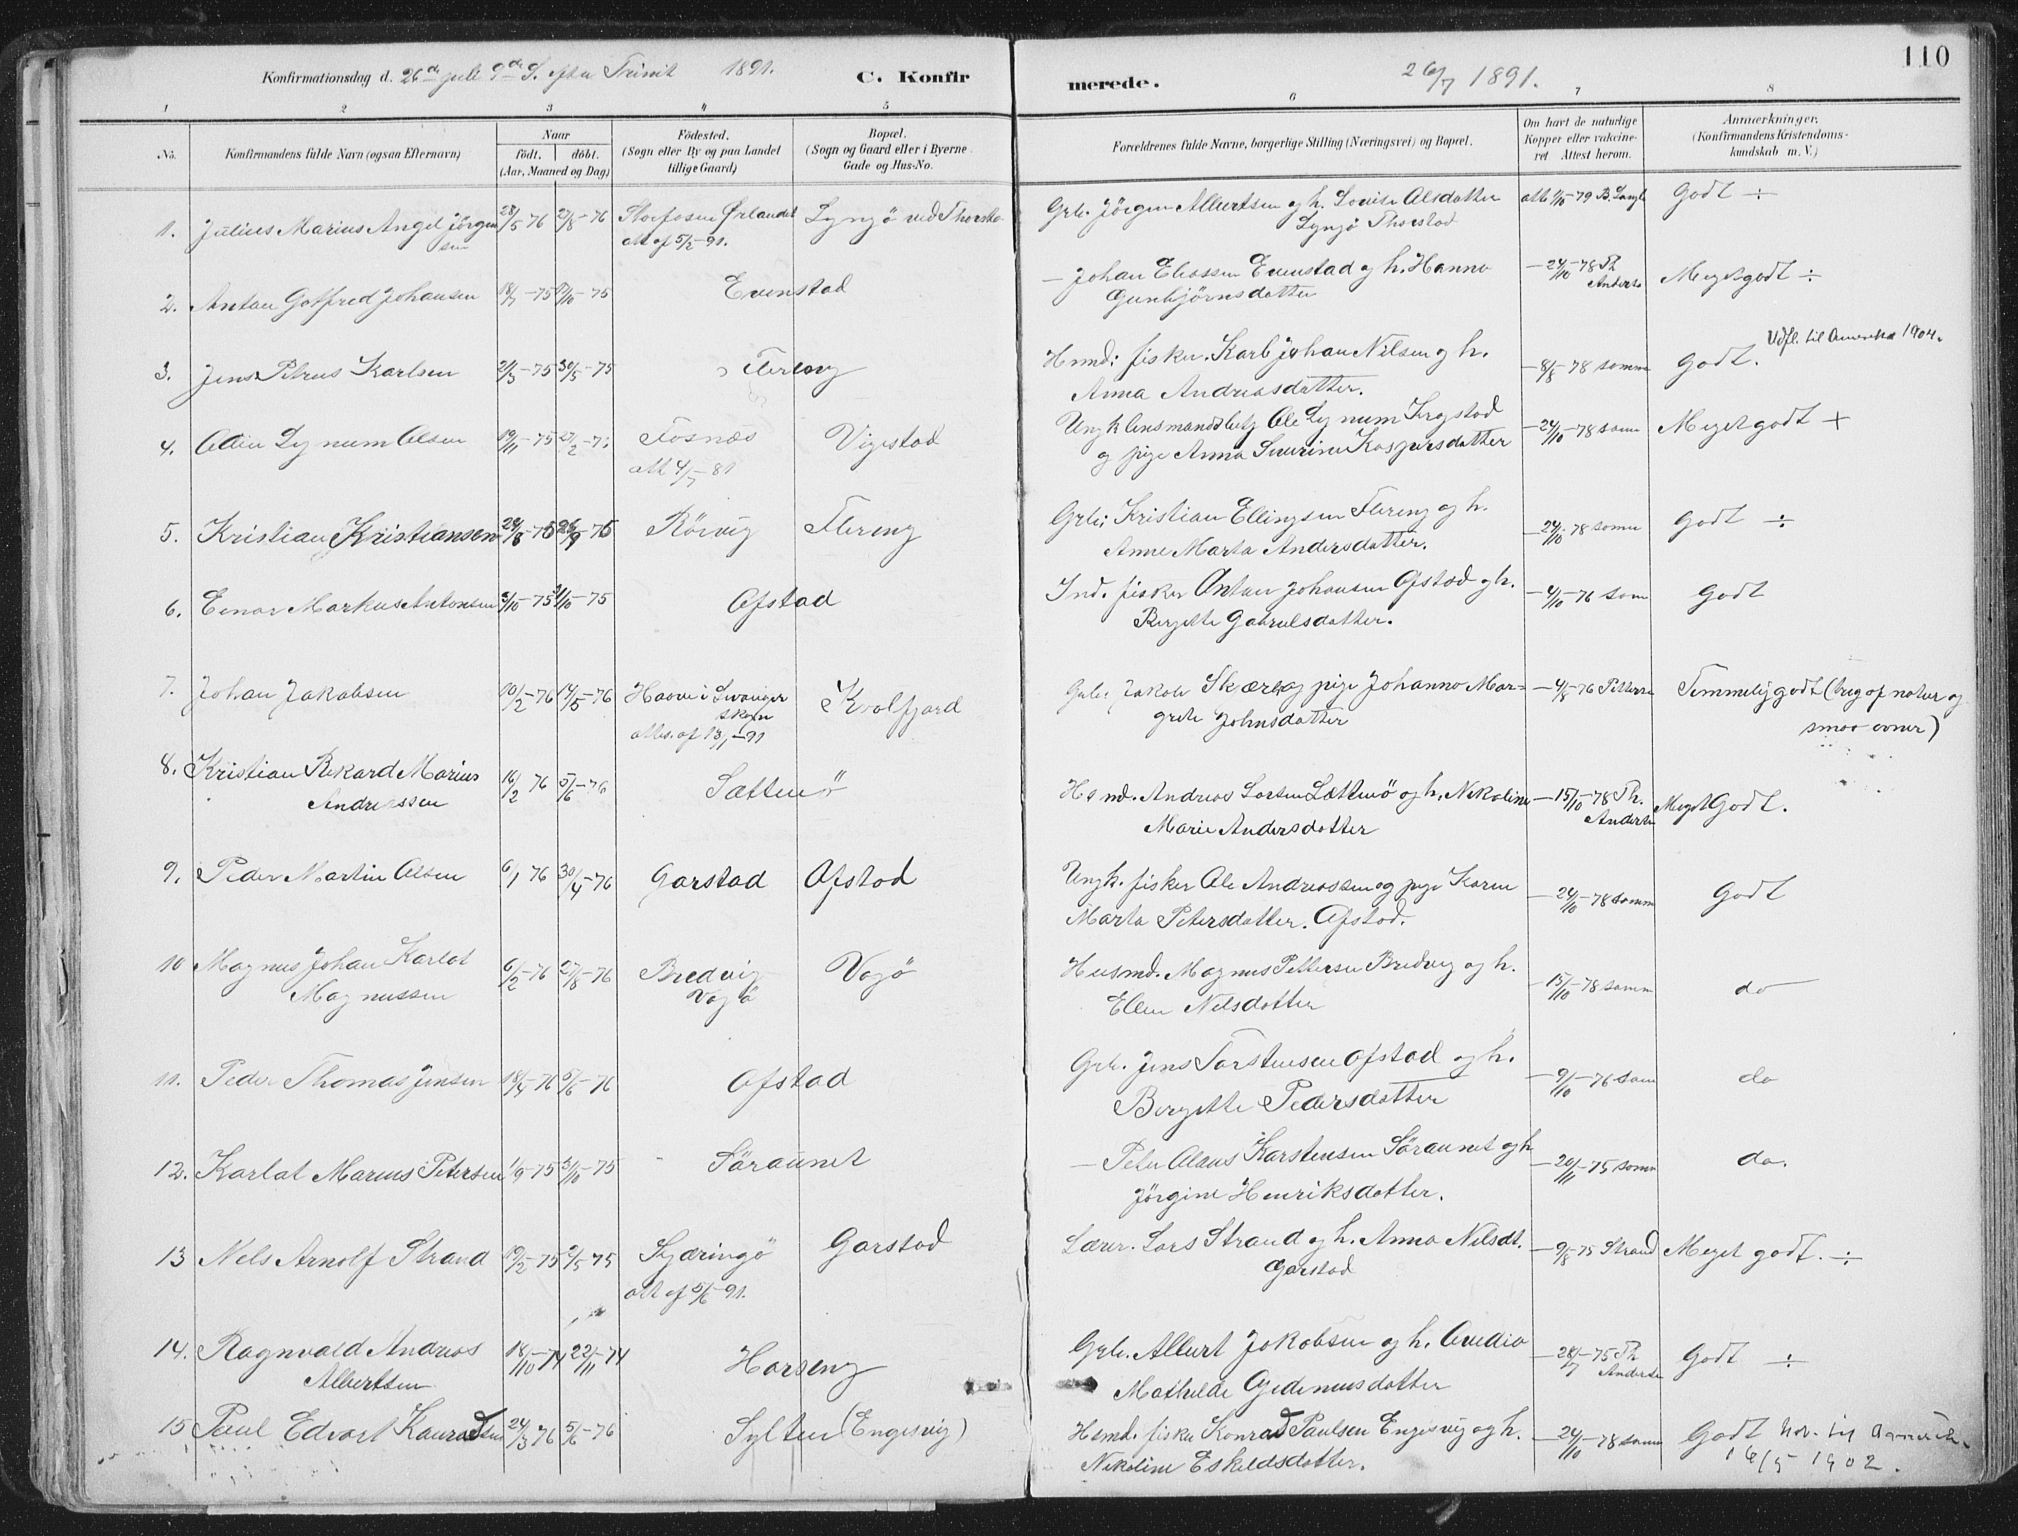 110
Konfirmationsdag d. 26de juli 9de S. efter Trinit 1891. C. Konfir
merede. 26/7 1891.
1 2 3 4 5 6 7 8
No. Konfirmandens fulde Navn (ogsaa Efternavn) Naar født. døbt. (Aar, Maaned og Dag)
Födested. (Sogn eller By og paa Landet tillige Gaard)
Bopæl. (Sogn og Gaard eller i Byerne Gade og Hus-No.
Forældrenes fulde Navne, borgerlige Stilling (Næringsvei) og Bopæl.
Om havt de naturlige Kopper eller vakcineret. Attest herom.
Anmærkninger. (Konfirmandens Kristendomskundskab m. V.)
1. Julius Marius Angel Jörgensen 28/5 76 27/8 -76 Storfosen Ørlandet Lyngö ved Thorsta Grbr. Jörgen Albertsen og h. Lovise Olsdatter att 1/10 -79 Godt ÷
att af 5/2 -91. Lyngö Thorstad
2. Anton Gotfred Johansen 18/7 -75 /10 -75 Evenstad — Johan Eliassen Evenstad og h. Hanna — 24/10 -78 Th. Meget godt ÷
Gunbjörnsdatter Anderse
Udfl. til Amerika 1904.
3. Jens Petrus Karlsen 21/3 -75 30/5 -75 Flereng Hmd: fisker. Karl Johan Nilsen og h. — 8/8 -78 samme Godt.
Anna Andreasdatter.
4. Odin Dynum Olsen 19/11 -75 27/2 -7 Fosnæs Vigestad Ungk. linsmandsbetj Ole Dynum Krogstad — 24/10 -78 sam Meget godt +
att 4/7 -81 og pige Anna Severine Kaspersdatter
5. Kristian Kristiansen 24/8 -75 26/9 -75 Rörvig Flereng Grbr; Kristian Ellingsen Flereng og h. — 24/10 -78 samme Godt ÷
Anne Marta Andersdatter.
6. Einar Markus Antonsen 3/10 -75 31/10 -75 Ofstad Ind. fisker Anton Johansen Ofstad og h. — 4/10 -76 sam Godt
Bergette Gabrielsdatter.
7. Johan Jakobsen 10/2 -76 14/5 -76 Haave i Levanger Kvalfjord Gbr. Jakob Skjærk og pige Johanna Mar= — 4/8 -76 Petterse Temmelig godt (treg af natur og
skogn
grete Johnsdatter smaa evner)
attes. af 13/1 -91
8. Kristian Rikard Marius 16/2 76 5/6 -76 Sættenö Hsmd. Andreas Larsen Sættenö og h. Nikoline — 15/10 -78 Th. Meget Godt.
Andreassen Marie Andersdatter Anderse
9. Peder Martin Olsen 6/1 76 30/4 -76 Garstad Ofstad Ungk. fisker Ole Andreassen og pige Karen — 24/10 -78 samm Godt
Marta Petersdatter. Ofstad.
10 Magnus Johan Karlot 6/2 -76 27/8 -76 Bredvig Vagö Husmd. Magnus Pettersen Bredvig og h. — 15/10 -78 samm do
Magnussen Vagö Ellen Nilsdatter
11. Peder Thomas Jensen 18/4 -76 5/6 -76 Ofstad Grbr. Jens Torstensen Ofstad og h. — 9/10 -76 sam do
Bergette Pedersdatter
12. Karlot Marius Petersen 1/9 -75 3/10 -75 Söraunet — Peter Olaus Karstensen Söraunet og h — 20/11 -75 samm do.
Jörgine Henriksdatter.
13 Nels Arnolf Strand 19/2 -75 2/5 -75 Kjæringö Garstad Lærer. Lars Strand og h. Anna Nilsdt. — 9/8 -75 Strand Meget godt. ÷
att af 5/6 -91. Garstad
14. Ragnvald Andreas 18/10 -74 22/11 -74 Horseng Grbr. Albert Jakobsen og h. Ovedia — 28/7 -75 Th Godt ÷
Albertsen Mathilde Gjedemusdatter Anderse
15 Paul Edvart Konradsen 24/3 76 5/6 -76 Sylten (Engesvig) Hsmd. fisker Konrad Paulsen Engesvig og h. — 24/10 -78 samm Godt
Nikoline Eskildsdatter. 16/5 1902.